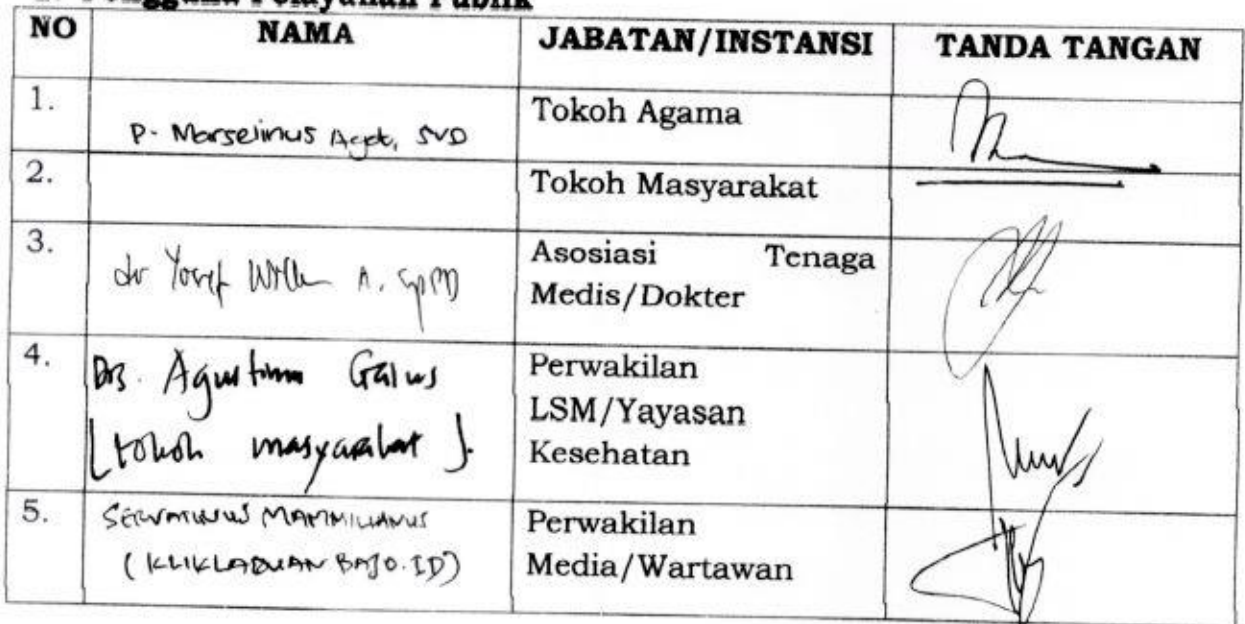 Pengguna Pelayanan Publik
NO NAMA JABATAN/INSTANSI TANDA TANGAN
1. P. Marselinus Agot, SVD Tokoh Agama
2. Tokoh Masyarakat
3. dr Yosef A. SpPD Asosiasi Tenaga
Medis/Dokter
4. Drs. Agustinus Galus Perwakilan
[tokoh masyarakat]. LSM/Yayasan
Kesehatan
5. SERVATINUS MAMMILIANUS Perwakilan
(KLIKLABUAN BAJO.ID) Media/Wartawan